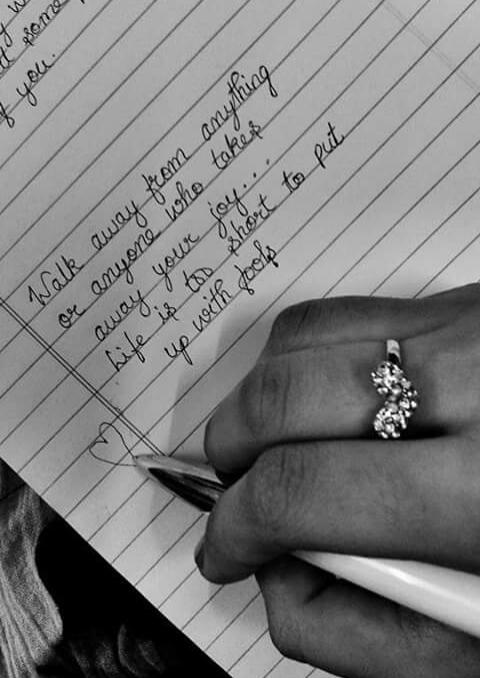 some
of you.
Walk away from anything
or anyone who takes
away your joy...
Life is too short to put
up with fools